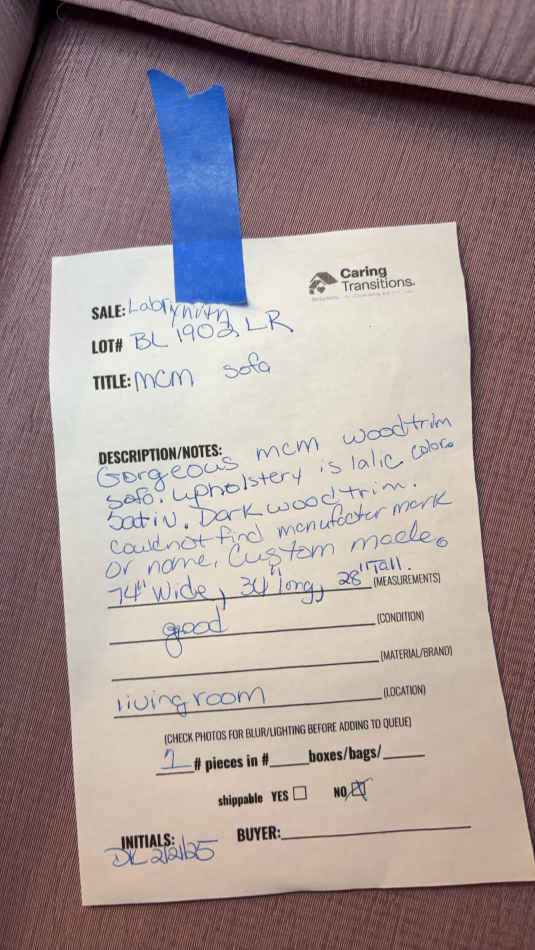 Caring
Transitions.
SALE: Labrynith
LOT# BL 1902 LR
TITLE: MCM Sofa
DESCRIPTION/NOTES:
Gorgeous mcm woodtrim
sofa. upholstery is lalic color
Satin. Dark wood trim.
Could not find manufactor mark
or name. Custom made.
74" Wide, 34" long, 28" Tall.
(MEASUREMENTS)
good (CONDITION)
(MATERIAL/BRAND)
livingroom (LOCATION)
(CHECK PHOTOS FOR BLUR/LIGHTING BEFORE ADDING TO QUEUE)
1 # pieces in #_____boxes/bags/_____
shippable YES NO
INITIALS: BUYER:
DK 2/2/25